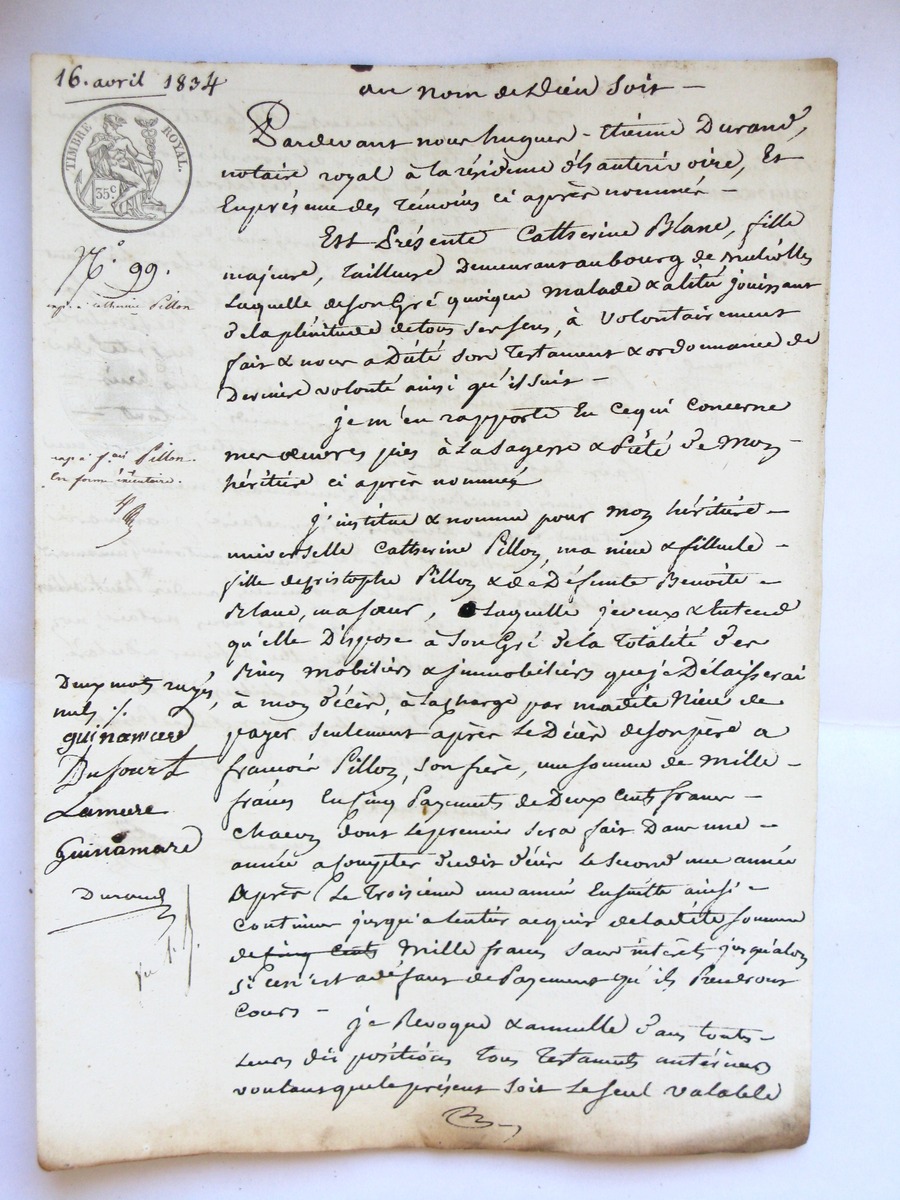 16. avril 1834
au nom de Dieu soit —
TIMBRE ROYAL.
35.c
Pardevant nous hugues - Etienne Durand,
notaire royal à la résidence d'hauterivoire, Et
En présence des témoins ci après nommés —
N.° 99.
Est Présente Catherine Blanc, fille
majeure, tailleuse Demeurant au bourg de
exp. à catherine Pillon
Laquelle de son Gré quoique malade & alité jouissant
de la plénitude de tous ses sens, à volontairement
fait & nous a Dicté son Testament & ordonnance de
Derniere volonté ainsi qu'il suit —
je m'en rapporte En cequi concerne
mes œuvres pies à La Sagesse & Piété de Mon
exp. à f.ois Pillon.
En forme exécutoire.
héritière ci après nommée
j'institue & nomme pour mon héritière —
universelle Catherine Pillon, ma niece & filleule -
fille de Christophe Pillon & de Défunte Benoîte -
Blanc, ma sœur, Laquelle je veux & Entend
qu'elle Dispose à son Gré de la Totalité des
Biens mobiliers & immobiliers que je Délaisserai
Deux mots rayés
nuls ·/.
à mon décès, à La charge par madite Niece de
guinamard
payer seulement après Le Décès de son père à
Dufourt
francois Pillon, son frère, une somme de Mille -
Lamure
francs En cinq Payments de Deux Cents francs —
Guinamard
chacun dont Le premier sera fait Dans une —
année a compter dudit décès Le second une année
Durand
après Le Troisieme une année Ensuitte ainsi -
continuer jusqu'a lentier acquis de ladite somme
de cinq cents Mille francs sans intérêt jusqu'alors
si ce n'est à défaut de Payement qu'ils Prendront
cours —
je Révoque & annulle dans toutes
Leurs dispositions Tous Testaments antérieurs
voulant que le présent soit Le seul valable